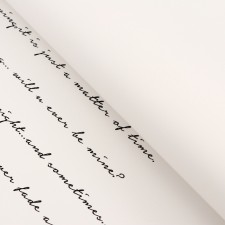 it is just a matter of time.
... will u ever be mine?
night...and sometimes...
ver fade a